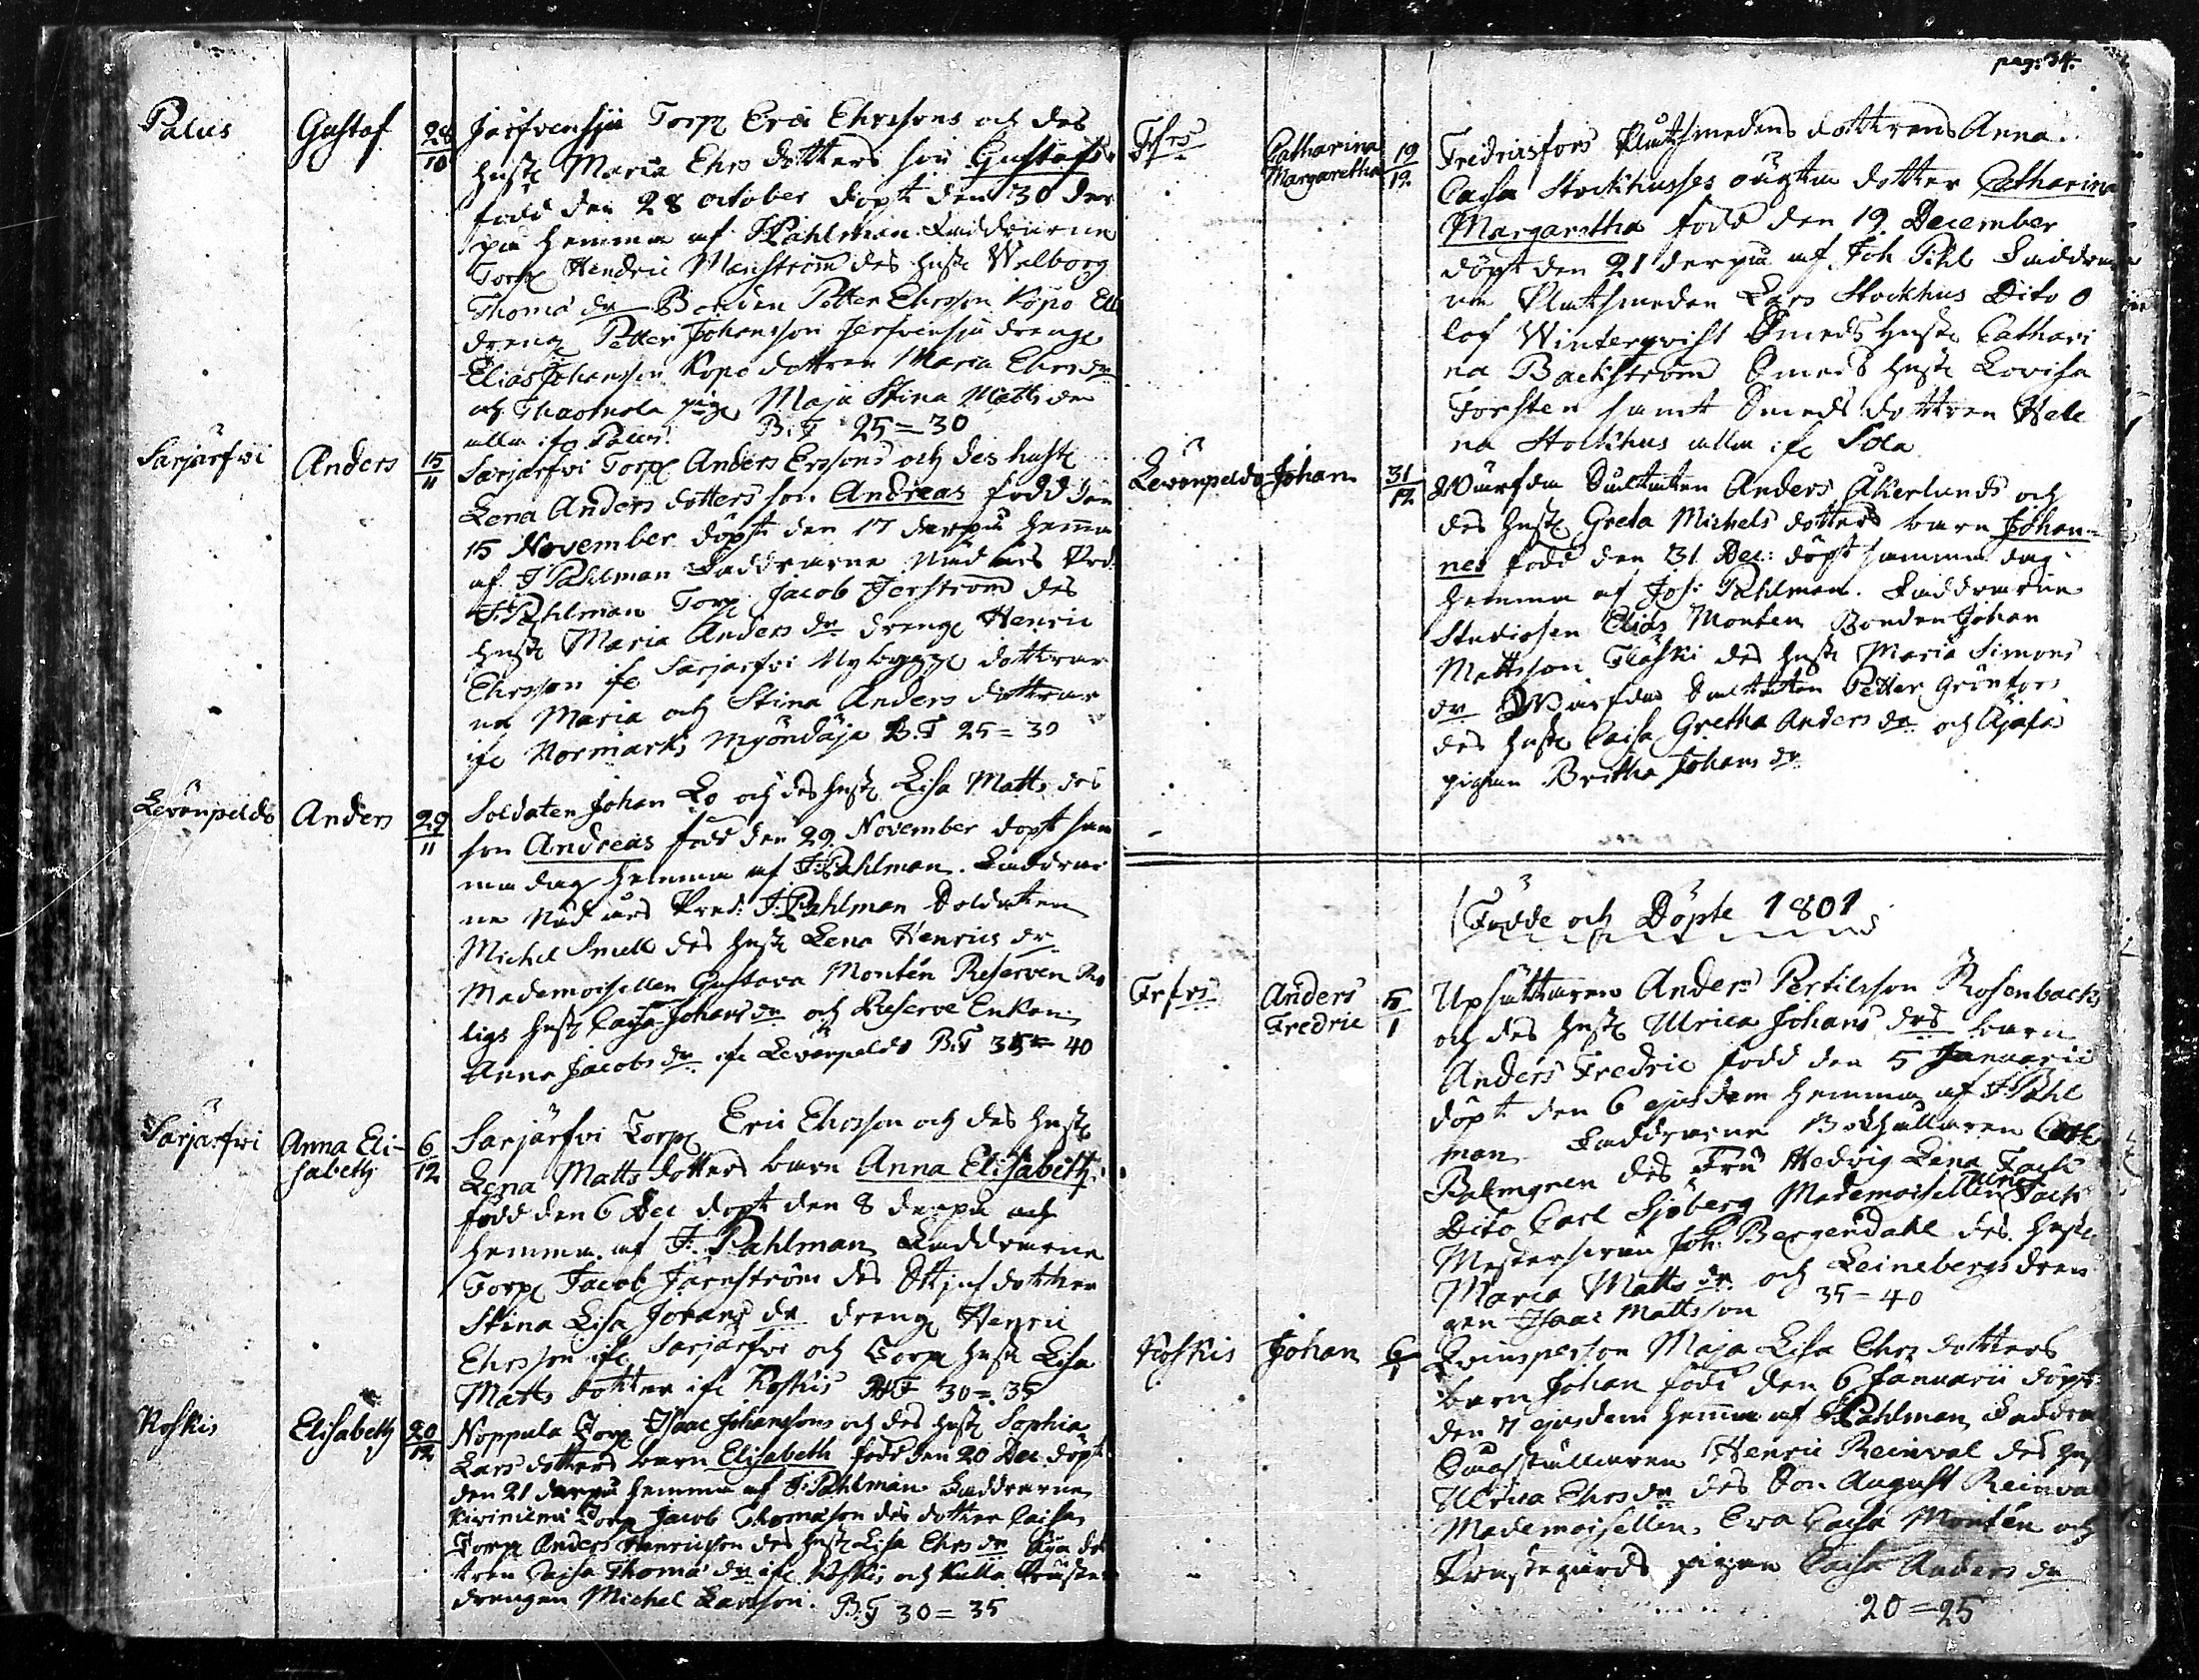 pag: 34.
Palus Gustaf 28/10 Jerfvensju Torp Eric Ehrssons och des
hust Maria Ehrs dotters son Gustaf
född den 28 october döpt den 30 der
på hemma af J Pahlman Faddrarne
Torp Hendric Manström des hust Walborg
Thoma dr Bonden Petter Ehrsson Köpo
dreng Petter Johansson Jerfvensju dreng
Elias Johansson Köpo dottren Maria Ehrs dr
och pig Maja Stina Matts dr
alla ifr Palus. B. F 25=30
Sarjärfvi Anders 15/11 Sarjärfvi Torp Anders Erssons och des hust
Lena Anders dotters son Andreas född den
15 November döpt den 17 derpå hemma
af J Pahlman Faddrarne Nådårs Pred.
J. Pahlman Torp Jacob Jerström des
hust Maria Anders dr dreng Henric
Ehrsson ifr Sarjärfvi Nybygge dottrar
na Maria och Stina Anders dottrar
ifr Normarks Myöndäjä B. F 25=30
Levänpeldo Anders 29/11 Soldaten Johan Lo och des hust Lisa Matts drs
son Andreas född den 29 November döpt sam
ma dag hemma af J. Pahlman. Faddrar
ne Nådårs Pred: J. Pahlman Soldaten
Michel Smell des hust Lena Henrics dr
Mademoisellen Gustava Montén Reserven Ro
ligs hust Caisa Johans dr och Reserve Enkan
Anna Jacobs dr ifr Levänpeldo B. F 35=40
Sarjärfvi Anna Eli-
sabeth 6/12 Sarjärfvi Torp Eric Ehrsson och des hust
Lena Matts dotters barn Anna Elisabeth
född den 6 Dec döpt den 8 derpå
hemma af J. Pahlman Faddrarne
Torp Jacob Järnström des Stjufdotter
Stina Lisa Johans dr dreng Henric
Ehrsson ifr Sarjärfvi och Torp hust Lisa
Matts dotter ifr Koskis B.F 30=35
Koskis Elisabeth 20/12 Noppula Torp Isaac Johanssons och des hust Sophia
Lars dotters barn Elisabeth född den 20 Dec döpt
den 21 derpå hemma af J. Pahlman Faddrarne
Kiviniemi Torp Jacob Thomasson des dotter Caisa
Torp Anders Henricsson des hust Lisa Ehrs dr Äijä dot
tren Caisa Thoma dr ifr Koskis och Kulla
drengen Michel Larsson. B. F 30=35
Frfrs Catharina
Margaretha 19/12 Fredricsfors Klutsmedens dottrens Anna
Caisa Stockhusses oägta dotter Catharina
Margaretha född den 19 December
döpt den 21 derpå af Joh Pihl Faddrar
ne Klutsmeden Lars Stockhus Dito O
lof Winterqvist Smeds hust Cathari
na Backström Smeds hust Lovisa
Forsten samt Smeds dottren Hele
na Stockhus alla ifr
Levänpeldo Johan 31/12 Wärfda Soldaten Anders Åkerlunds och
des hust Greta Michels dotters barn Johan-
nes född den 31 Dec: döpt samma dag
hemma af Joh: Pahlman. Faddrarne
Studiosen Elias Monten Bonden Johan
Mattsson Flaski des hust Maria Simons
dr Wärfda Soldaten Petter Grönfors
des hust Caisa Gretha Anders dr och
pigan Britha Johans dr
Födde och Döpte 1801
Frfrs Anders
Fredric 5/1 Upsättaren Anders Pertilsson Rosenbacks
och des hust Ulrica Johans drs barn
Anders Fredric född den 5 Januarii
döpt den 6 ejusdem hemma af J. Pahl
man Faddrarne Bokhållaren
Palmgren des Fru Hedvig Lena
Dito Carl Sjöberg Mademoisellen
Joh: Bergendahl des hust
Maria Matts dr och Leinebergs dren
gen Isaac Mattsson 35=40
Koskis Johan 6/1 Qvinsperson Maja Lisa Ehrs dotters
barn Johan född den 6 Januarii döpt
den 7 ejusdem hemma af J Pahlman Faddra
Henric Reinval des hust
Ulrica Ehrs dr des Son August Reinval
Mademoisellen Eva Caisa Montén och
Prestegårds pigan Caisa Anders dr
20=25